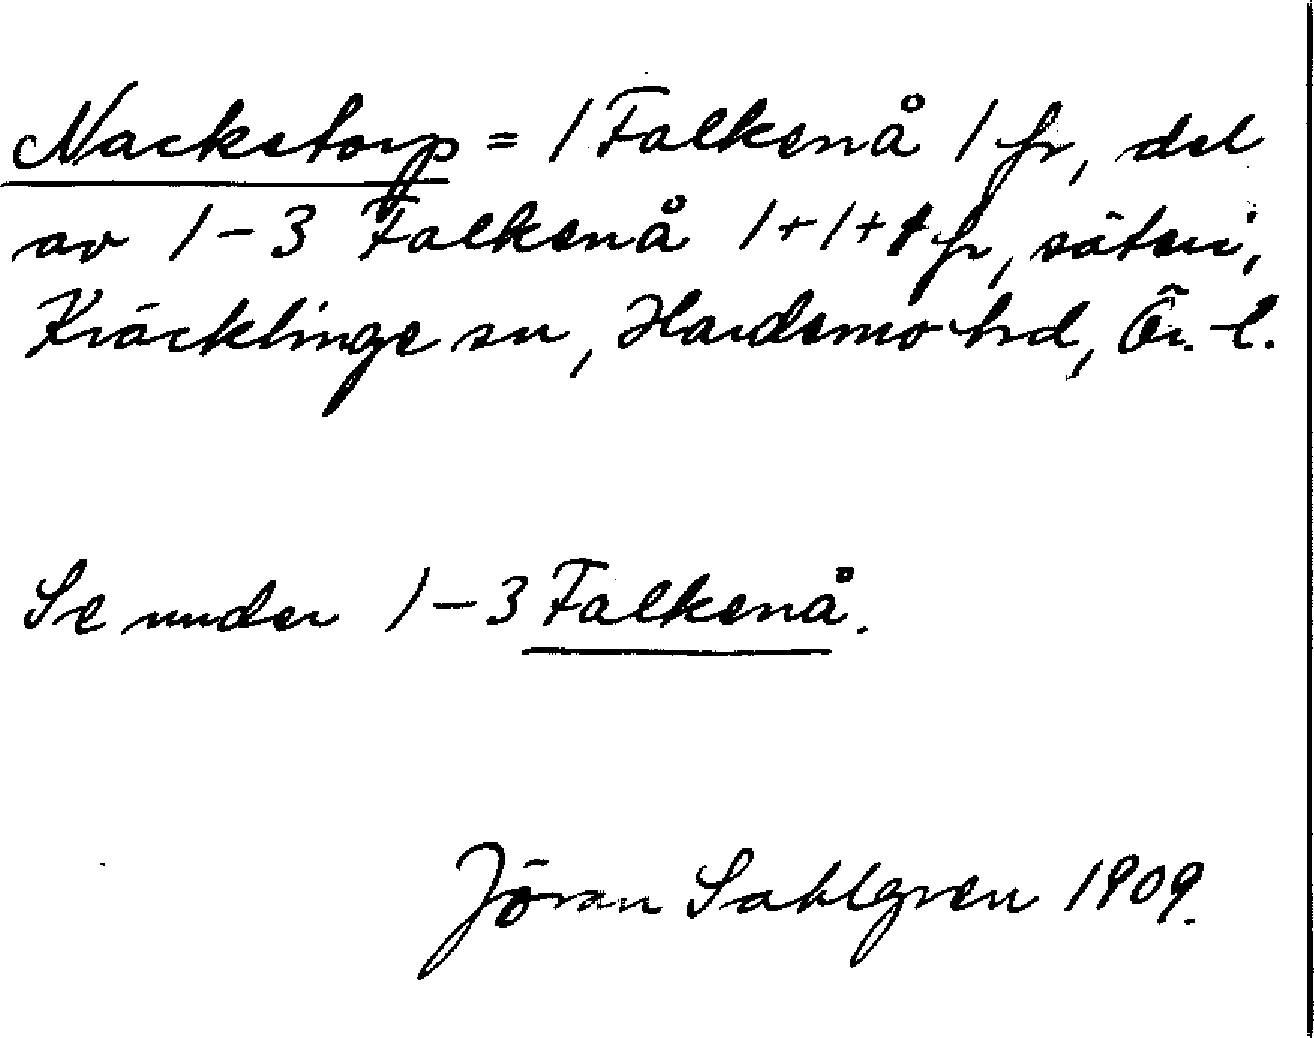 Nackstorp = 1 Falkenå 1 fr, del
av 1-3 Falkenå 1+1+1 fr, säteri,
Kräcklinge sn, Hardemo hd, Ör. l.
Se under 1-3 Falkenå.
Jöran Sahlgren 1909.